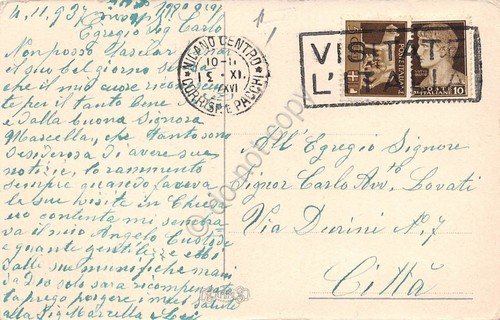 4.11.937
Egregio Sig Carlo
Non posso lasciar
il suo bel giorno senza
che il mio cuore riconoscen
te per il tanto bene
e dalla buona Signora
Marcella, che tanto sono
desiderosa di avere sue
notizie, la rammento
sempre quando faceva
la sua visita in
ero contenta mi sembra
va il mio Angelo Custode
e quante gentilezze ebbi
dalle sue munifiche mani
da Dio solo sarà ricompensata
la prego porgere i miei saluti
alla Sig Marcella
MILANO CENTRO
CORRISP. E PACCHI
10-11
XI
XVI
VISITATE
L'
POSTE ITALIANE
10
All'Egregio Signore
Signor Carlo Avv. Lovati
Via Durini N. 7
Città
do-not-copy